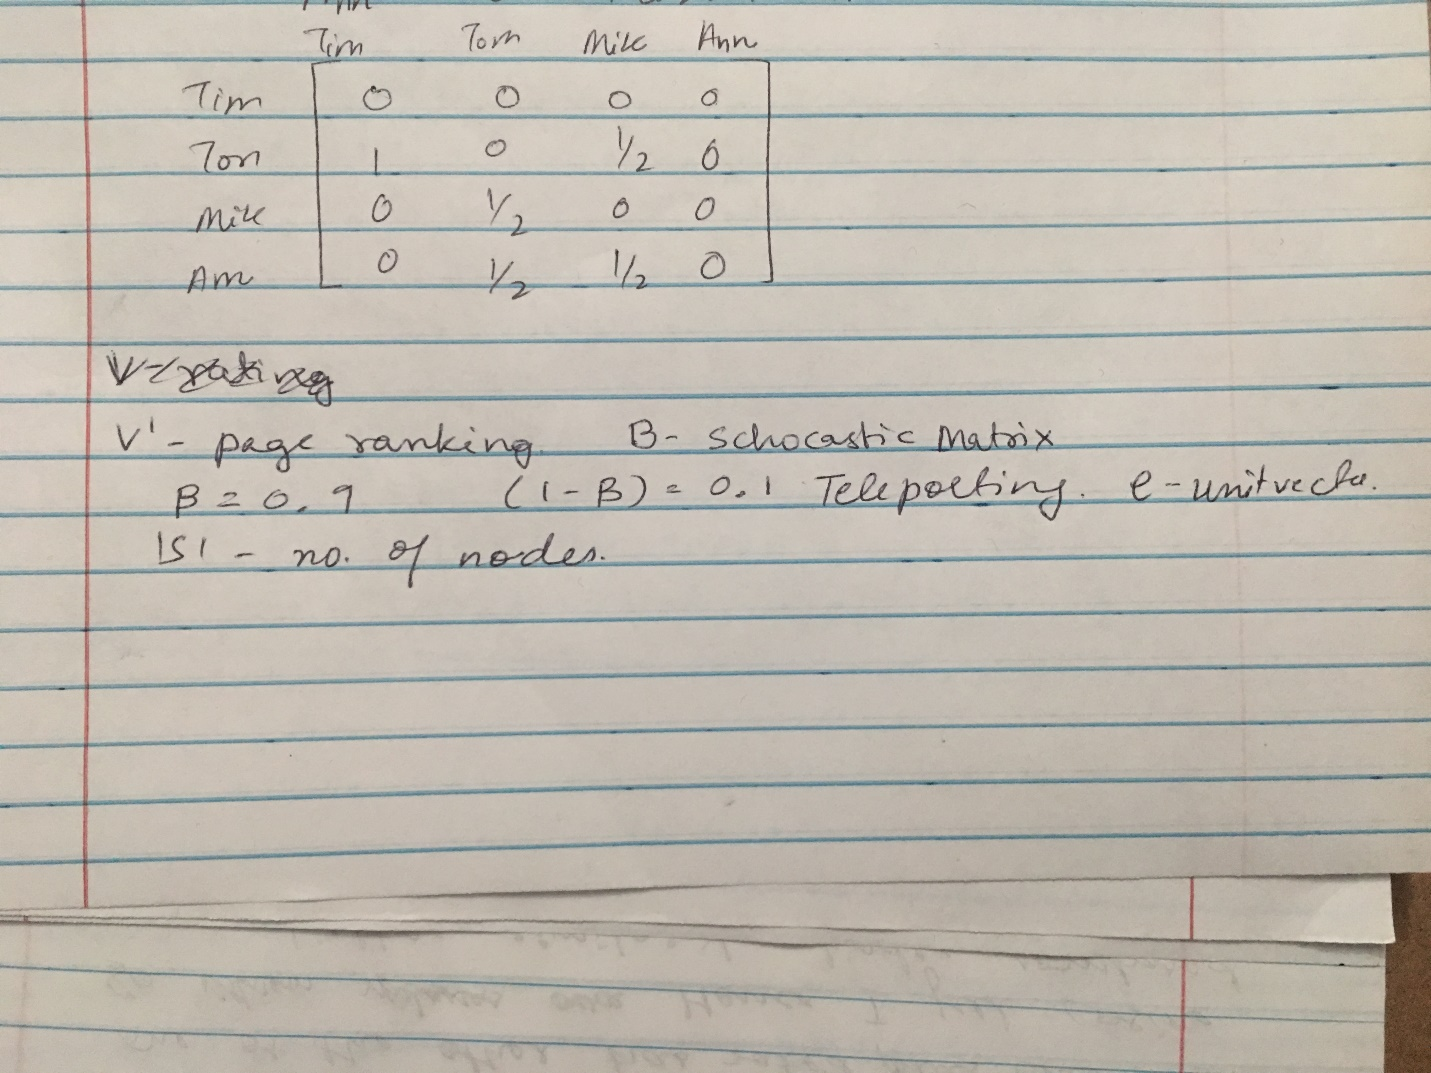 Tim Tom Mike Ann
Tim 0 0 0 0
Tom 1 0 1/2 0
Mike 0 1/2 0 0
Ann 0 1/2 1/2 0
V'- page ranking. B- Schocastic Matrix
β = 0.9 (1-β) = 0.1 Teleporting. e-unitvector.
|S| - no. of nodes.